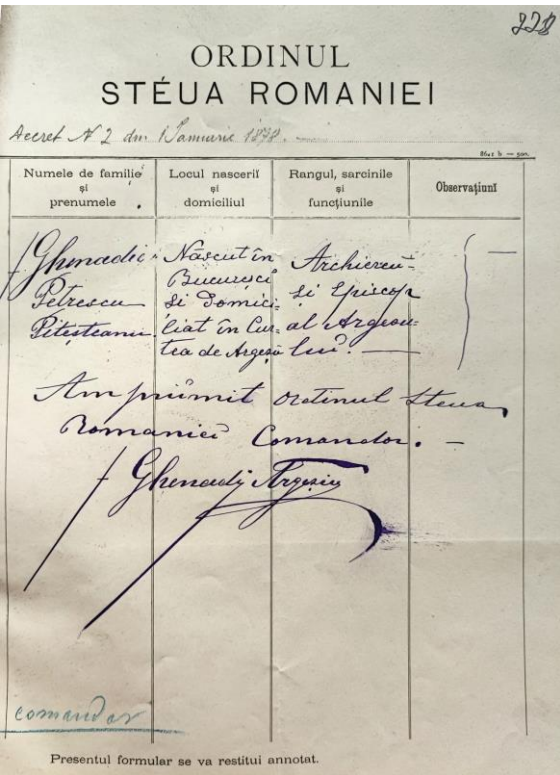 ORDINUL
STÉUA ROMANIEI
Decret N 2 din 1 Ianuarie 1878.
Numele de familie
și
prenumele
Locul nascerii
și
domiciliul
Rangul, sarcinile
și
funcțiunile
Observațiuni
Ghenadie
Petrescu
Piteșteanu
Născut în
Bucuresci
și Domici-
liat în Cur-
tea de Argeșă
Archiereu
și Episcop
al Argeșu-
lui.
Am priimit ordinul Steua
Romaniei Comandor.
Ghenadij Argesiu
comandor
Presentul formular se va restitui annotat.